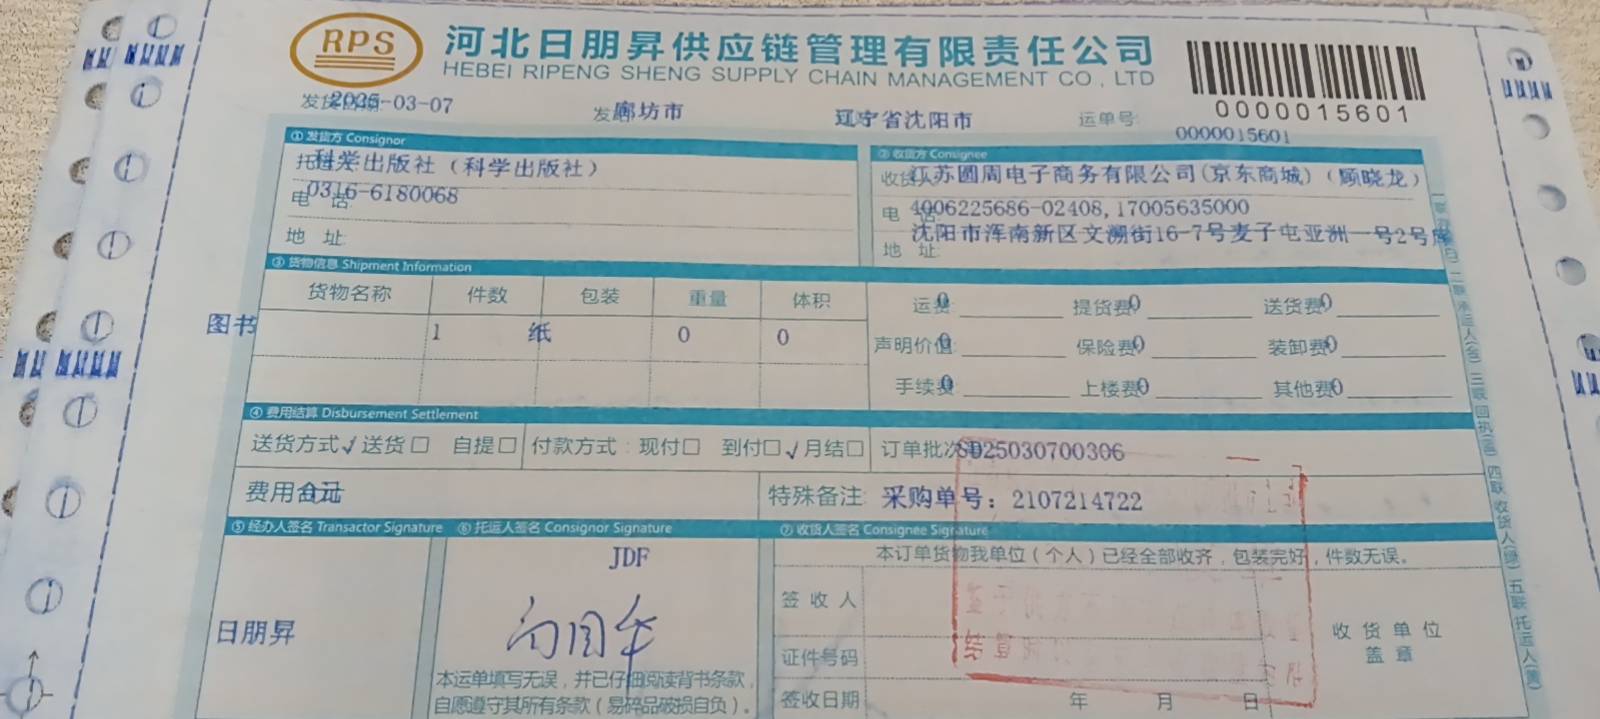 RPS
河北日朋昇供应链管理有限责任公司
HEBEI RIPENG SHENG SUPPLY CHAIN MANAGEMENT CO., LTD
0000015601
2025-03-07 发 廊坊市 辽宁省沈阳市 运单号: 0000015601
① 发货方 Consignor ② 收货方 Consignee
科学出版社（科学出版社） 江苏圆周电子商务有限公司(京东商城)（顾晓龙）
电 话: 0316-6180068 电 话: 4006225686-02408,17005635000
地 址: 地 址: 沈阳市浑南新区文溯街16-7号麦子屯亚洲一号2号库
③ 货物信息 Shipment Information
货物名称 件数 包装 重量 体积 运费0 提货费0 送货费0
图书 1 纸 0 0 声明价值0 保险费0 装卸费0
手续费0 上楼费0 其他费0
④ 费用结算 Disbursement Settlement
送货方式√送货□ 自提□ 付款方式: 现付□ 到付□√月结□ 订单批次 SD25030700306
费用合计 特殊备注: 采购单号：2107214722
⑤ 经办人签名 Transactor Signature ⑥ 托运人签名 Consignor Signature ⑦ 收货人签名 Consignee Signature
JDF 本订单货物我单位（个人）已经全部收齐，包装完好，件数无误。
签收人
日朋昇 收货单位
盖章
证件号码
本运单填写无误，并已仔细阅读背书条款，
自愿遵守其所有条款（易碎品破损自负）。 签收日期 年 月 日